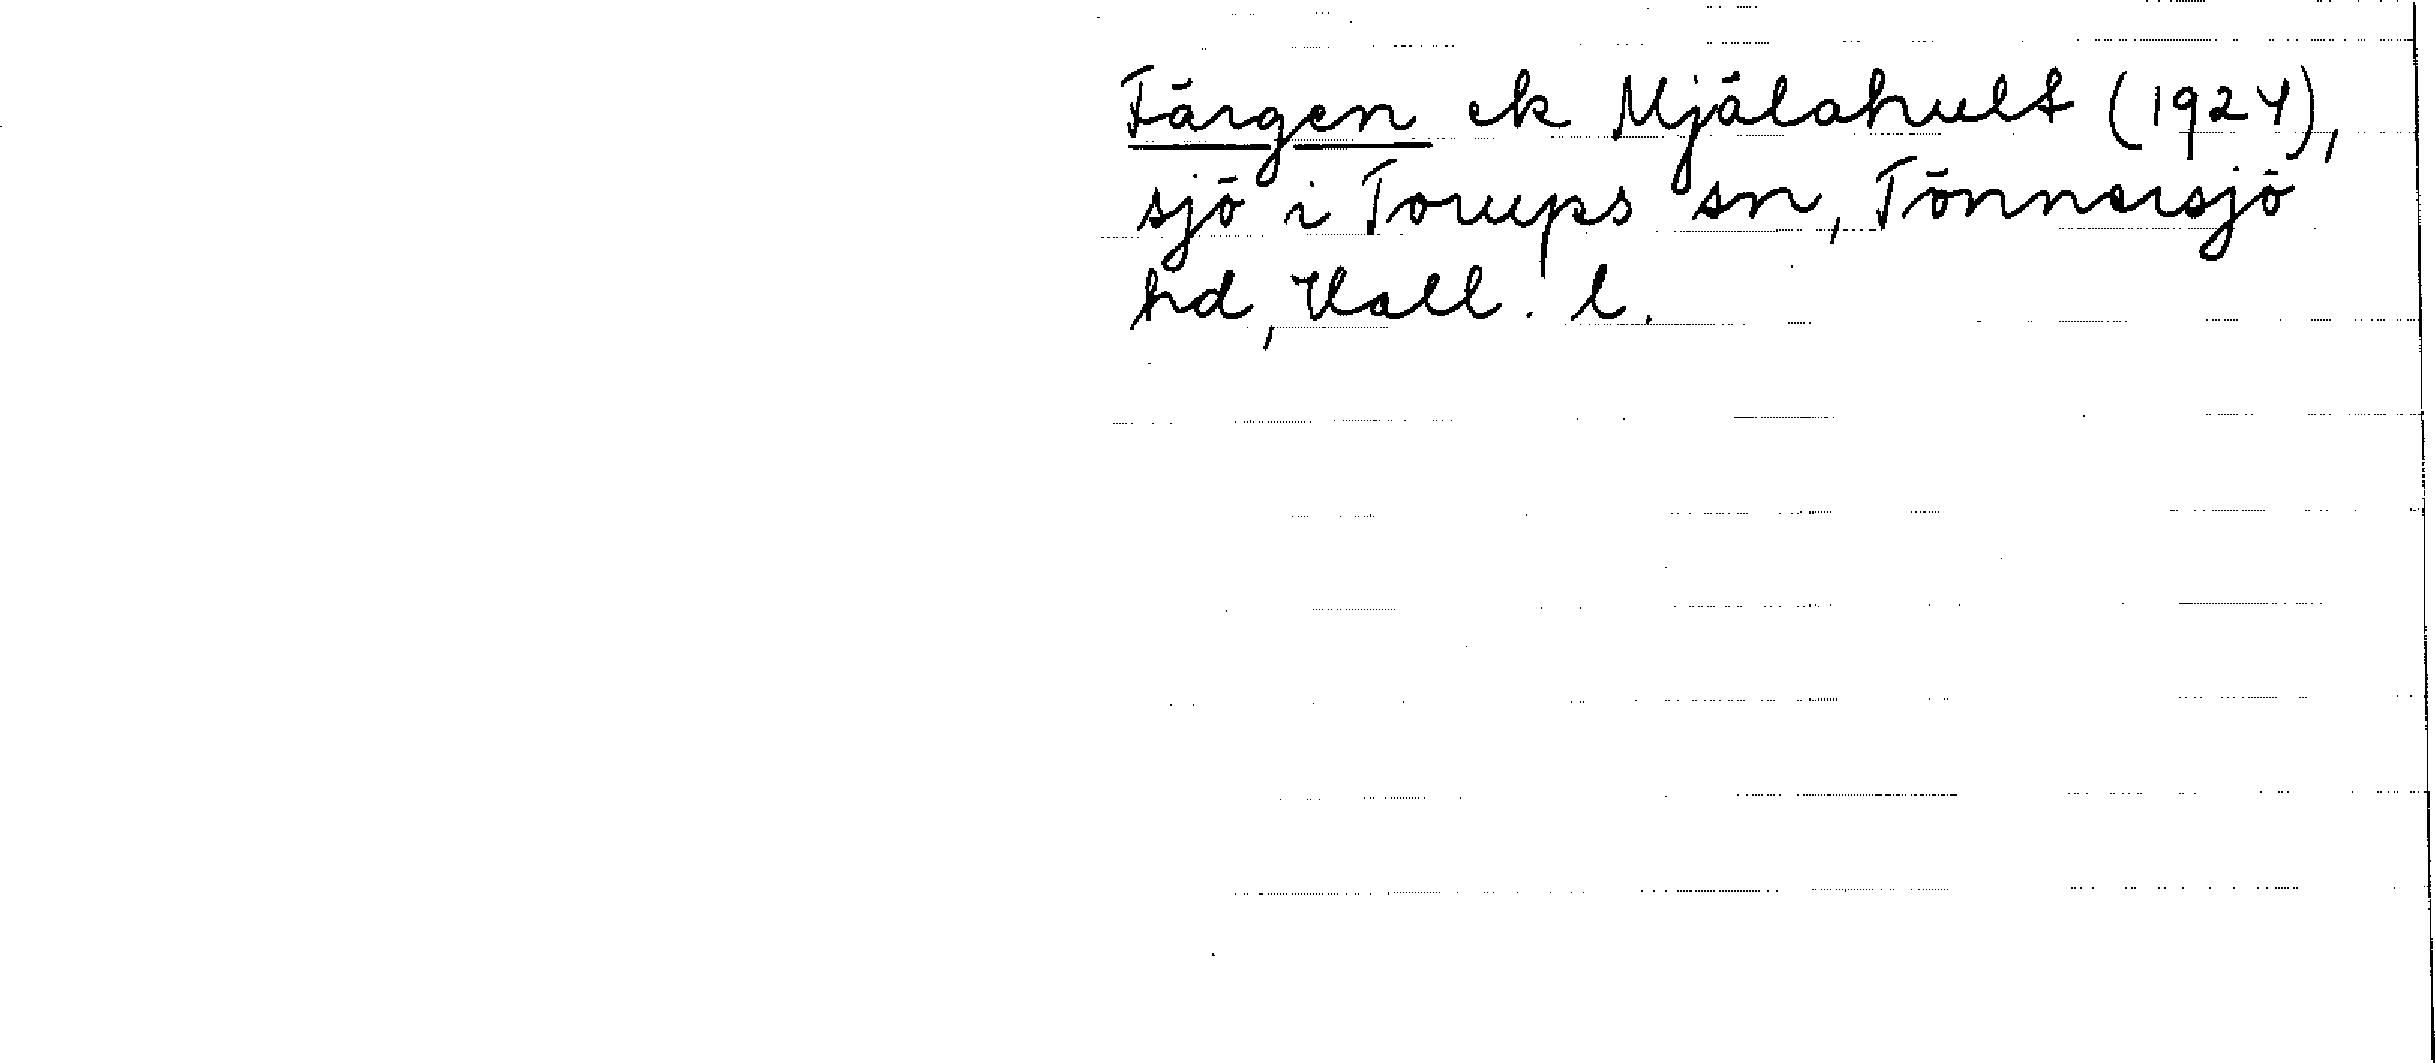 Färgen ek Mjälahult (1924),
sjö i Torups sn, Tönnersjö
hd, Hall. l.